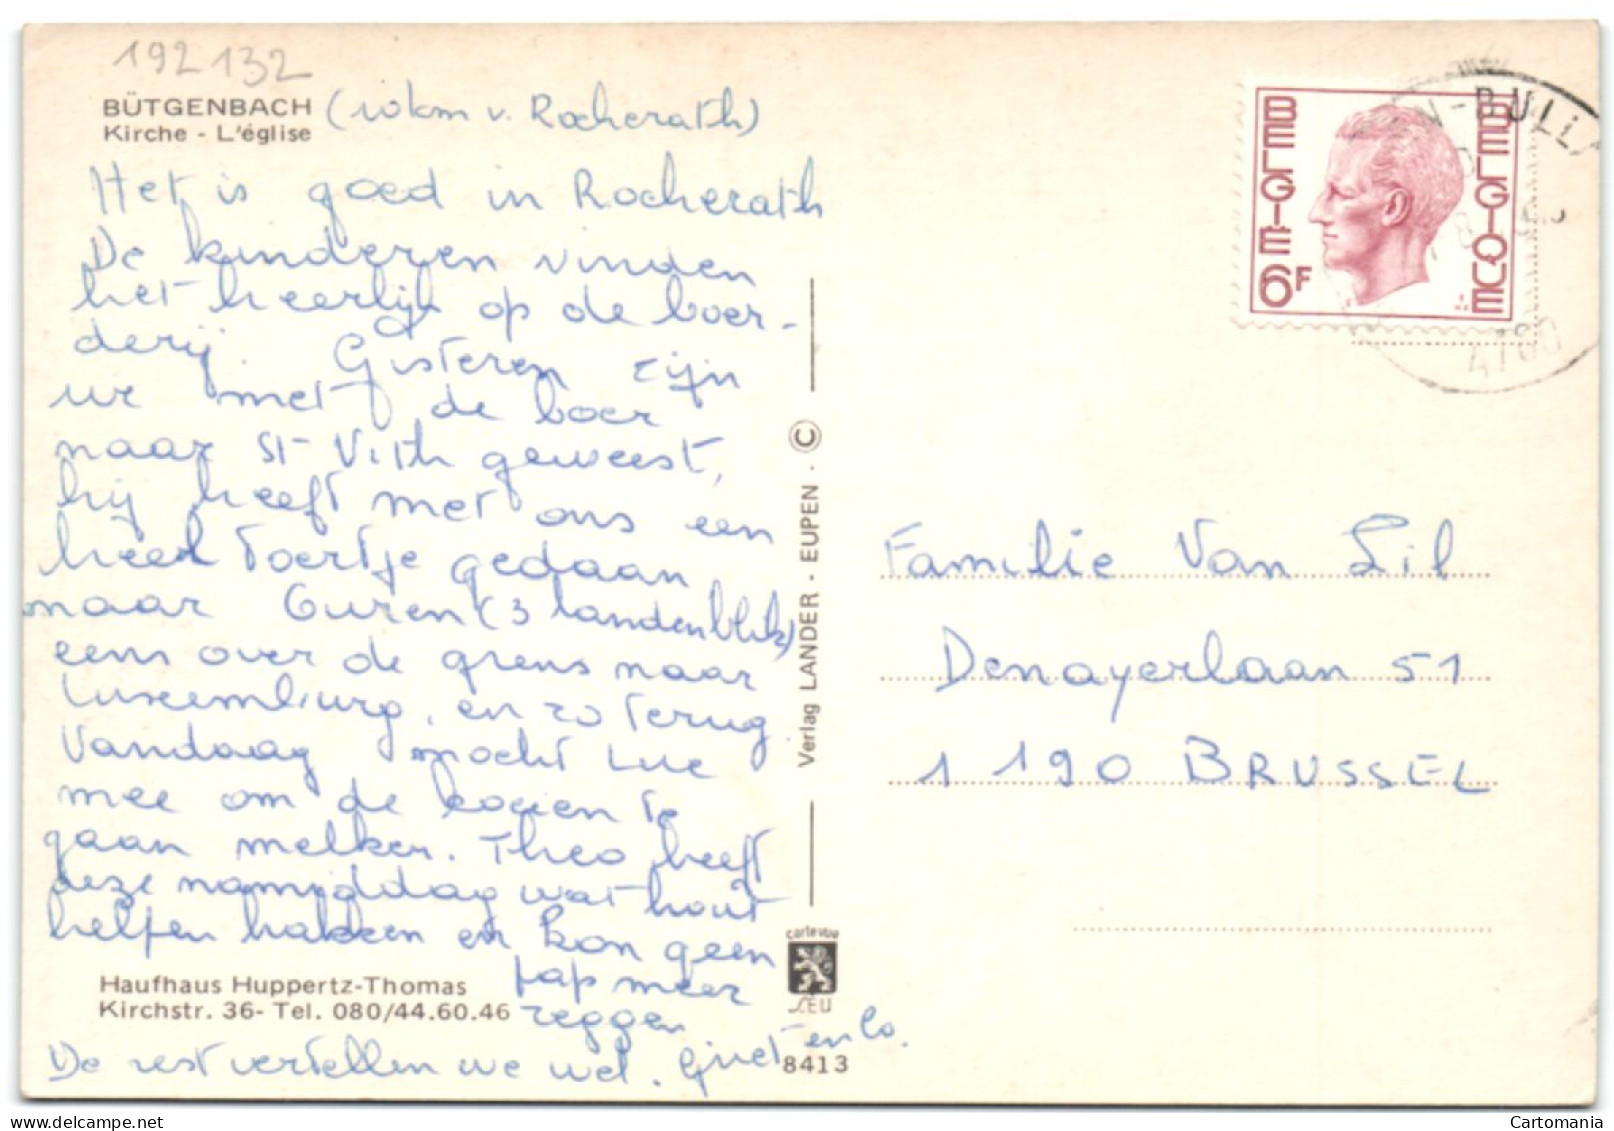 192132
BÜTGENBACH (10km v. Rocherath)
Kirche - L'église
Het is goed in Rocherath
De kinderen vinden
het heerlijk op de boer-
derij. Gisteren zijn
we met de boer
naar St-Vith geweest,
hij heeft met ons een
heel toertje gedaan
naar Ouren (3 landenblik)
eens over de grens naar
Luxemburg, en zo terug.
Vandaag mocht Luc
mee om de koeien te
gaan melken. Theo heeft
deze namiddag wat hout
helpen hakken en kon geen
pap meer
zeggen
De rest vertellen we wel.
Haufhaus Huppertz-Thomas
Kirchstr. 36- Tel. 080/44.60.46
Verlag LANDER - EUPEN - ©
carte vue
8413
BELGIE BELGIQUE
6F
4780
Familie Van Lil
Denayerlaan 51
1190 BRUSSEL
www.delcampe.net
Cartomania